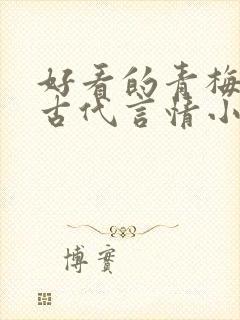 好看的青梅
古代言情小
博实